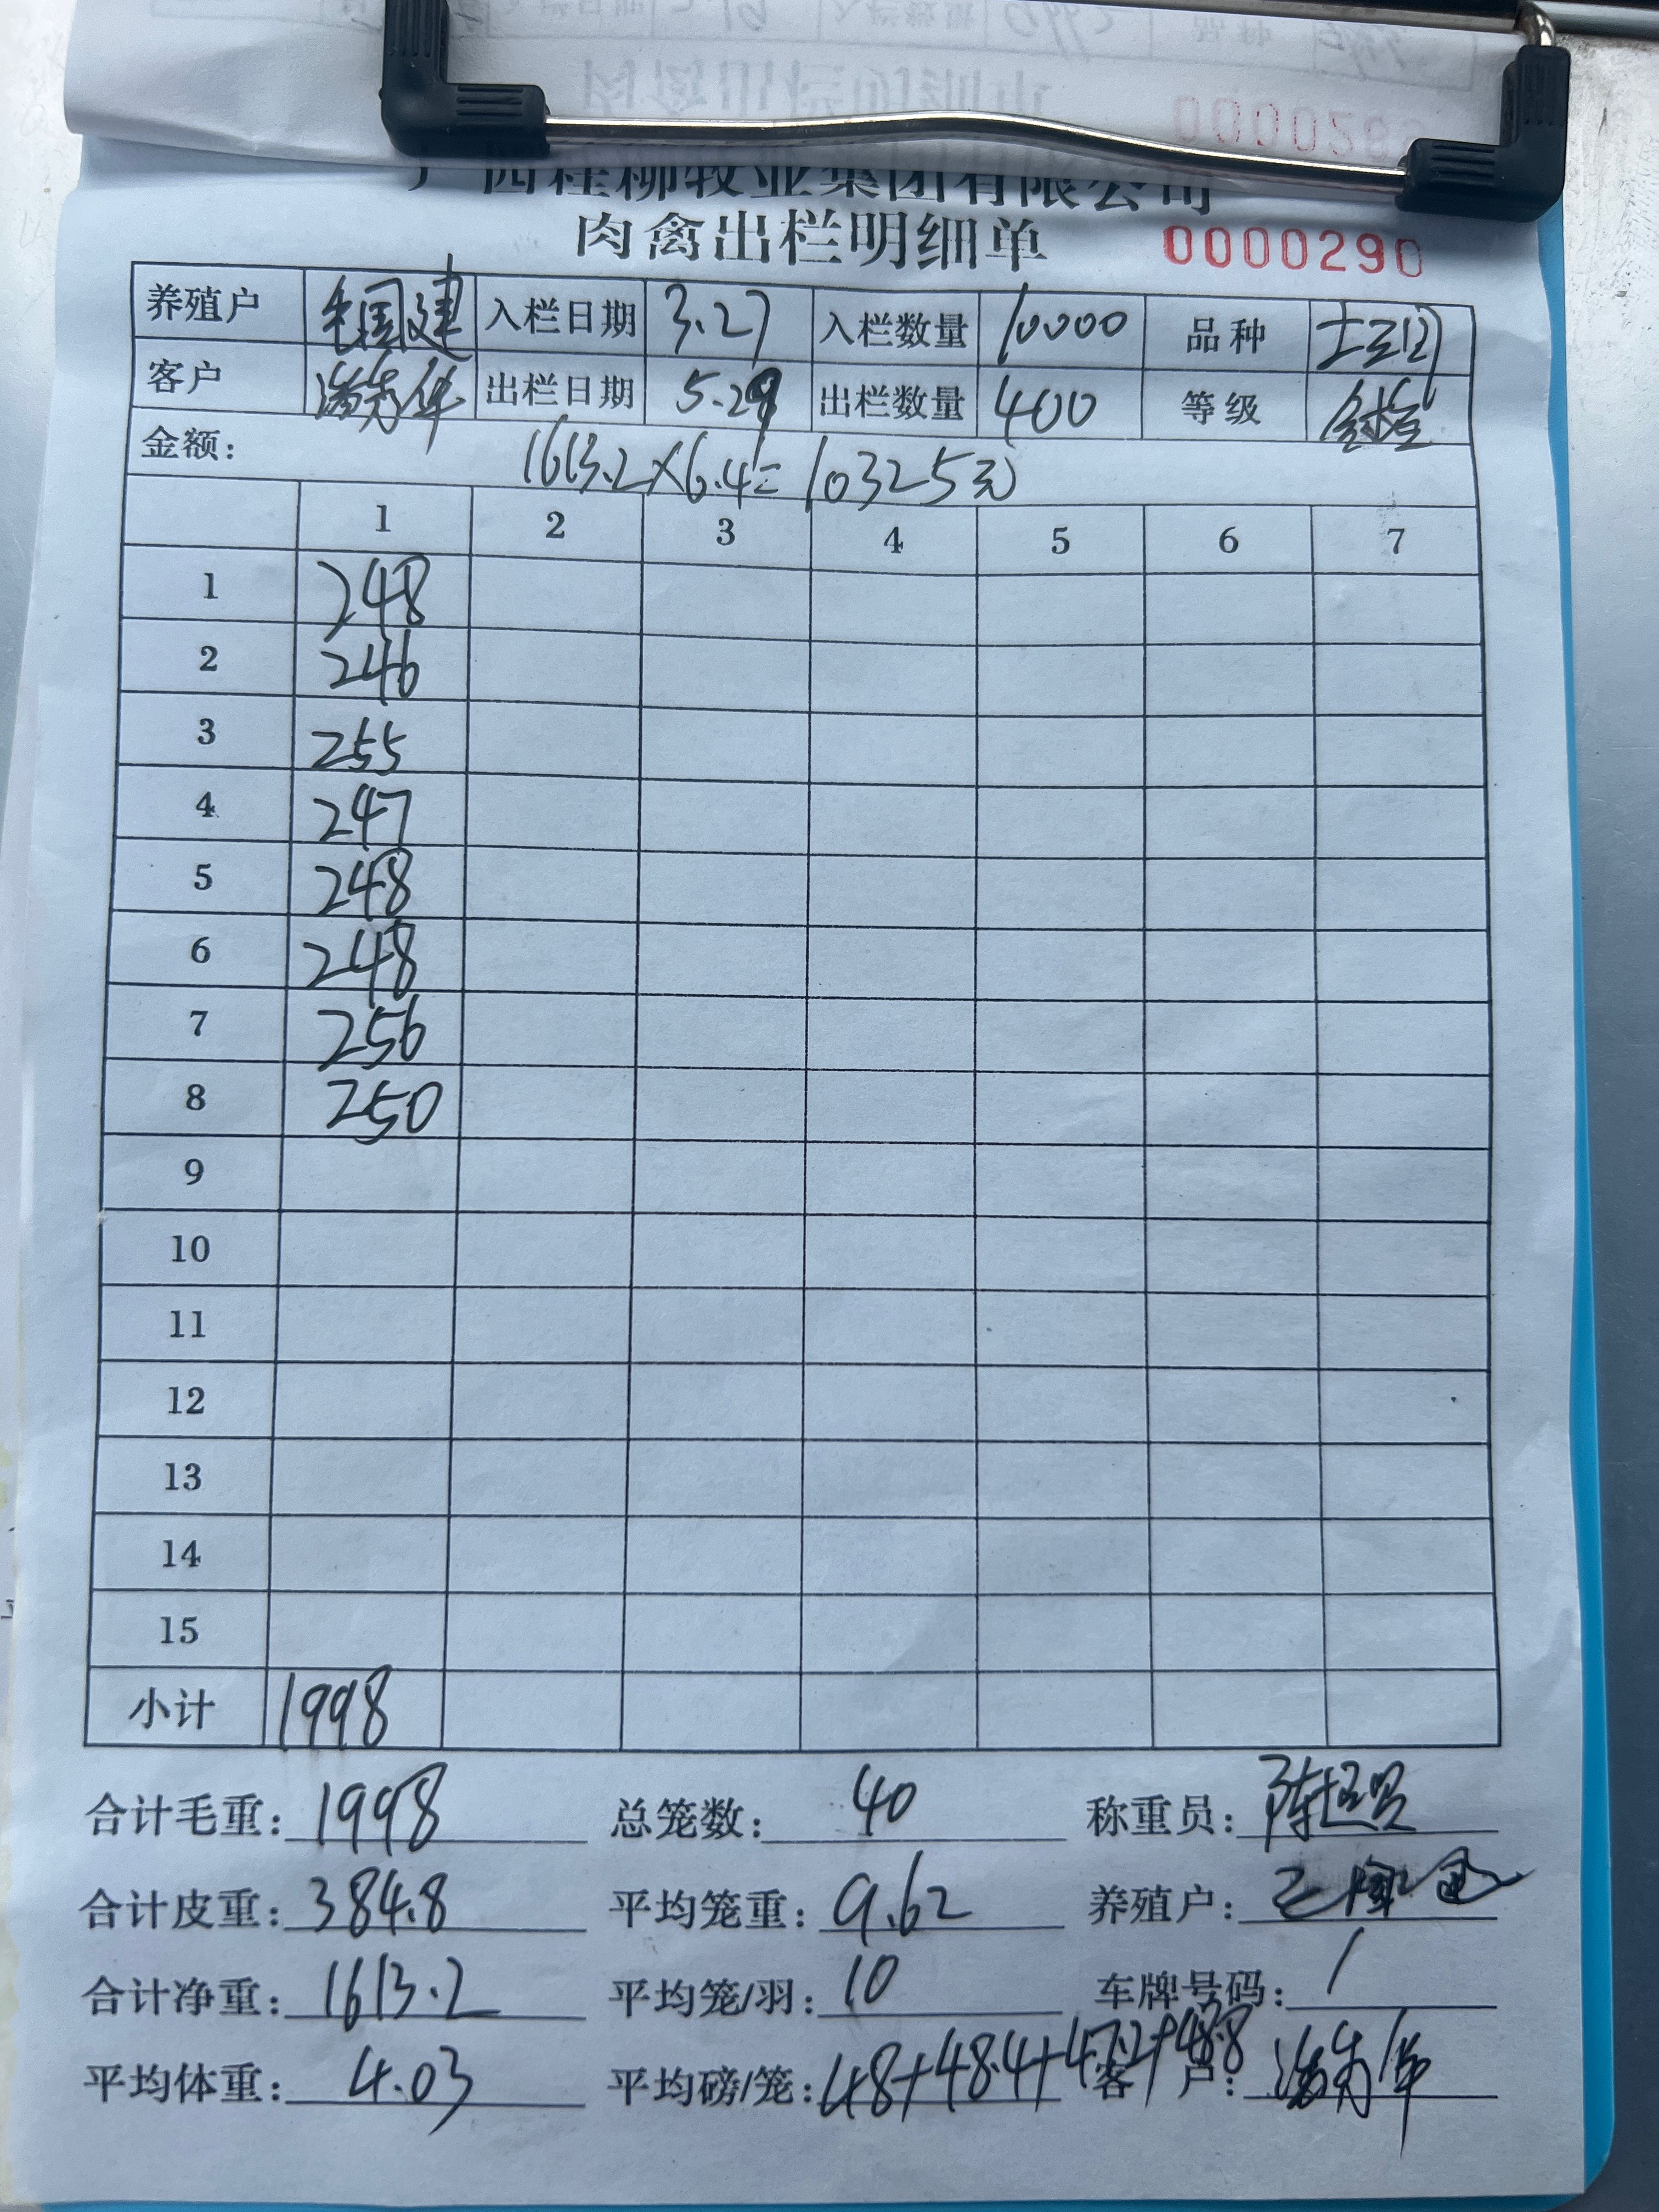 广西桂柳牧业集团有限公司
肉禽出栏明细单 0000290
养殖户 毛国建 入栏日期 3.27 入栏数量 10000 品种
客户 出栏日期 5.29 出栏数量 400 等级
金额: 1613.2×6.4=10325元
1 2 3 4 5 6 7
1 248
2 246
3 255
4 247
5 248
6 248
7 256
8 250
9
10
11
12
13
14
15
小计 1998
合计毛重: 1998 总笼数: 40 称重员:
合计皮重: 384.8 平均笼重: 9.62 养殖户:
合计净重: 1613.2 平均笼/羽: 10 车牌号码: /
平均体重: 4.03 平均磅/笼: 48+48.4+47.2+48.8 客户: